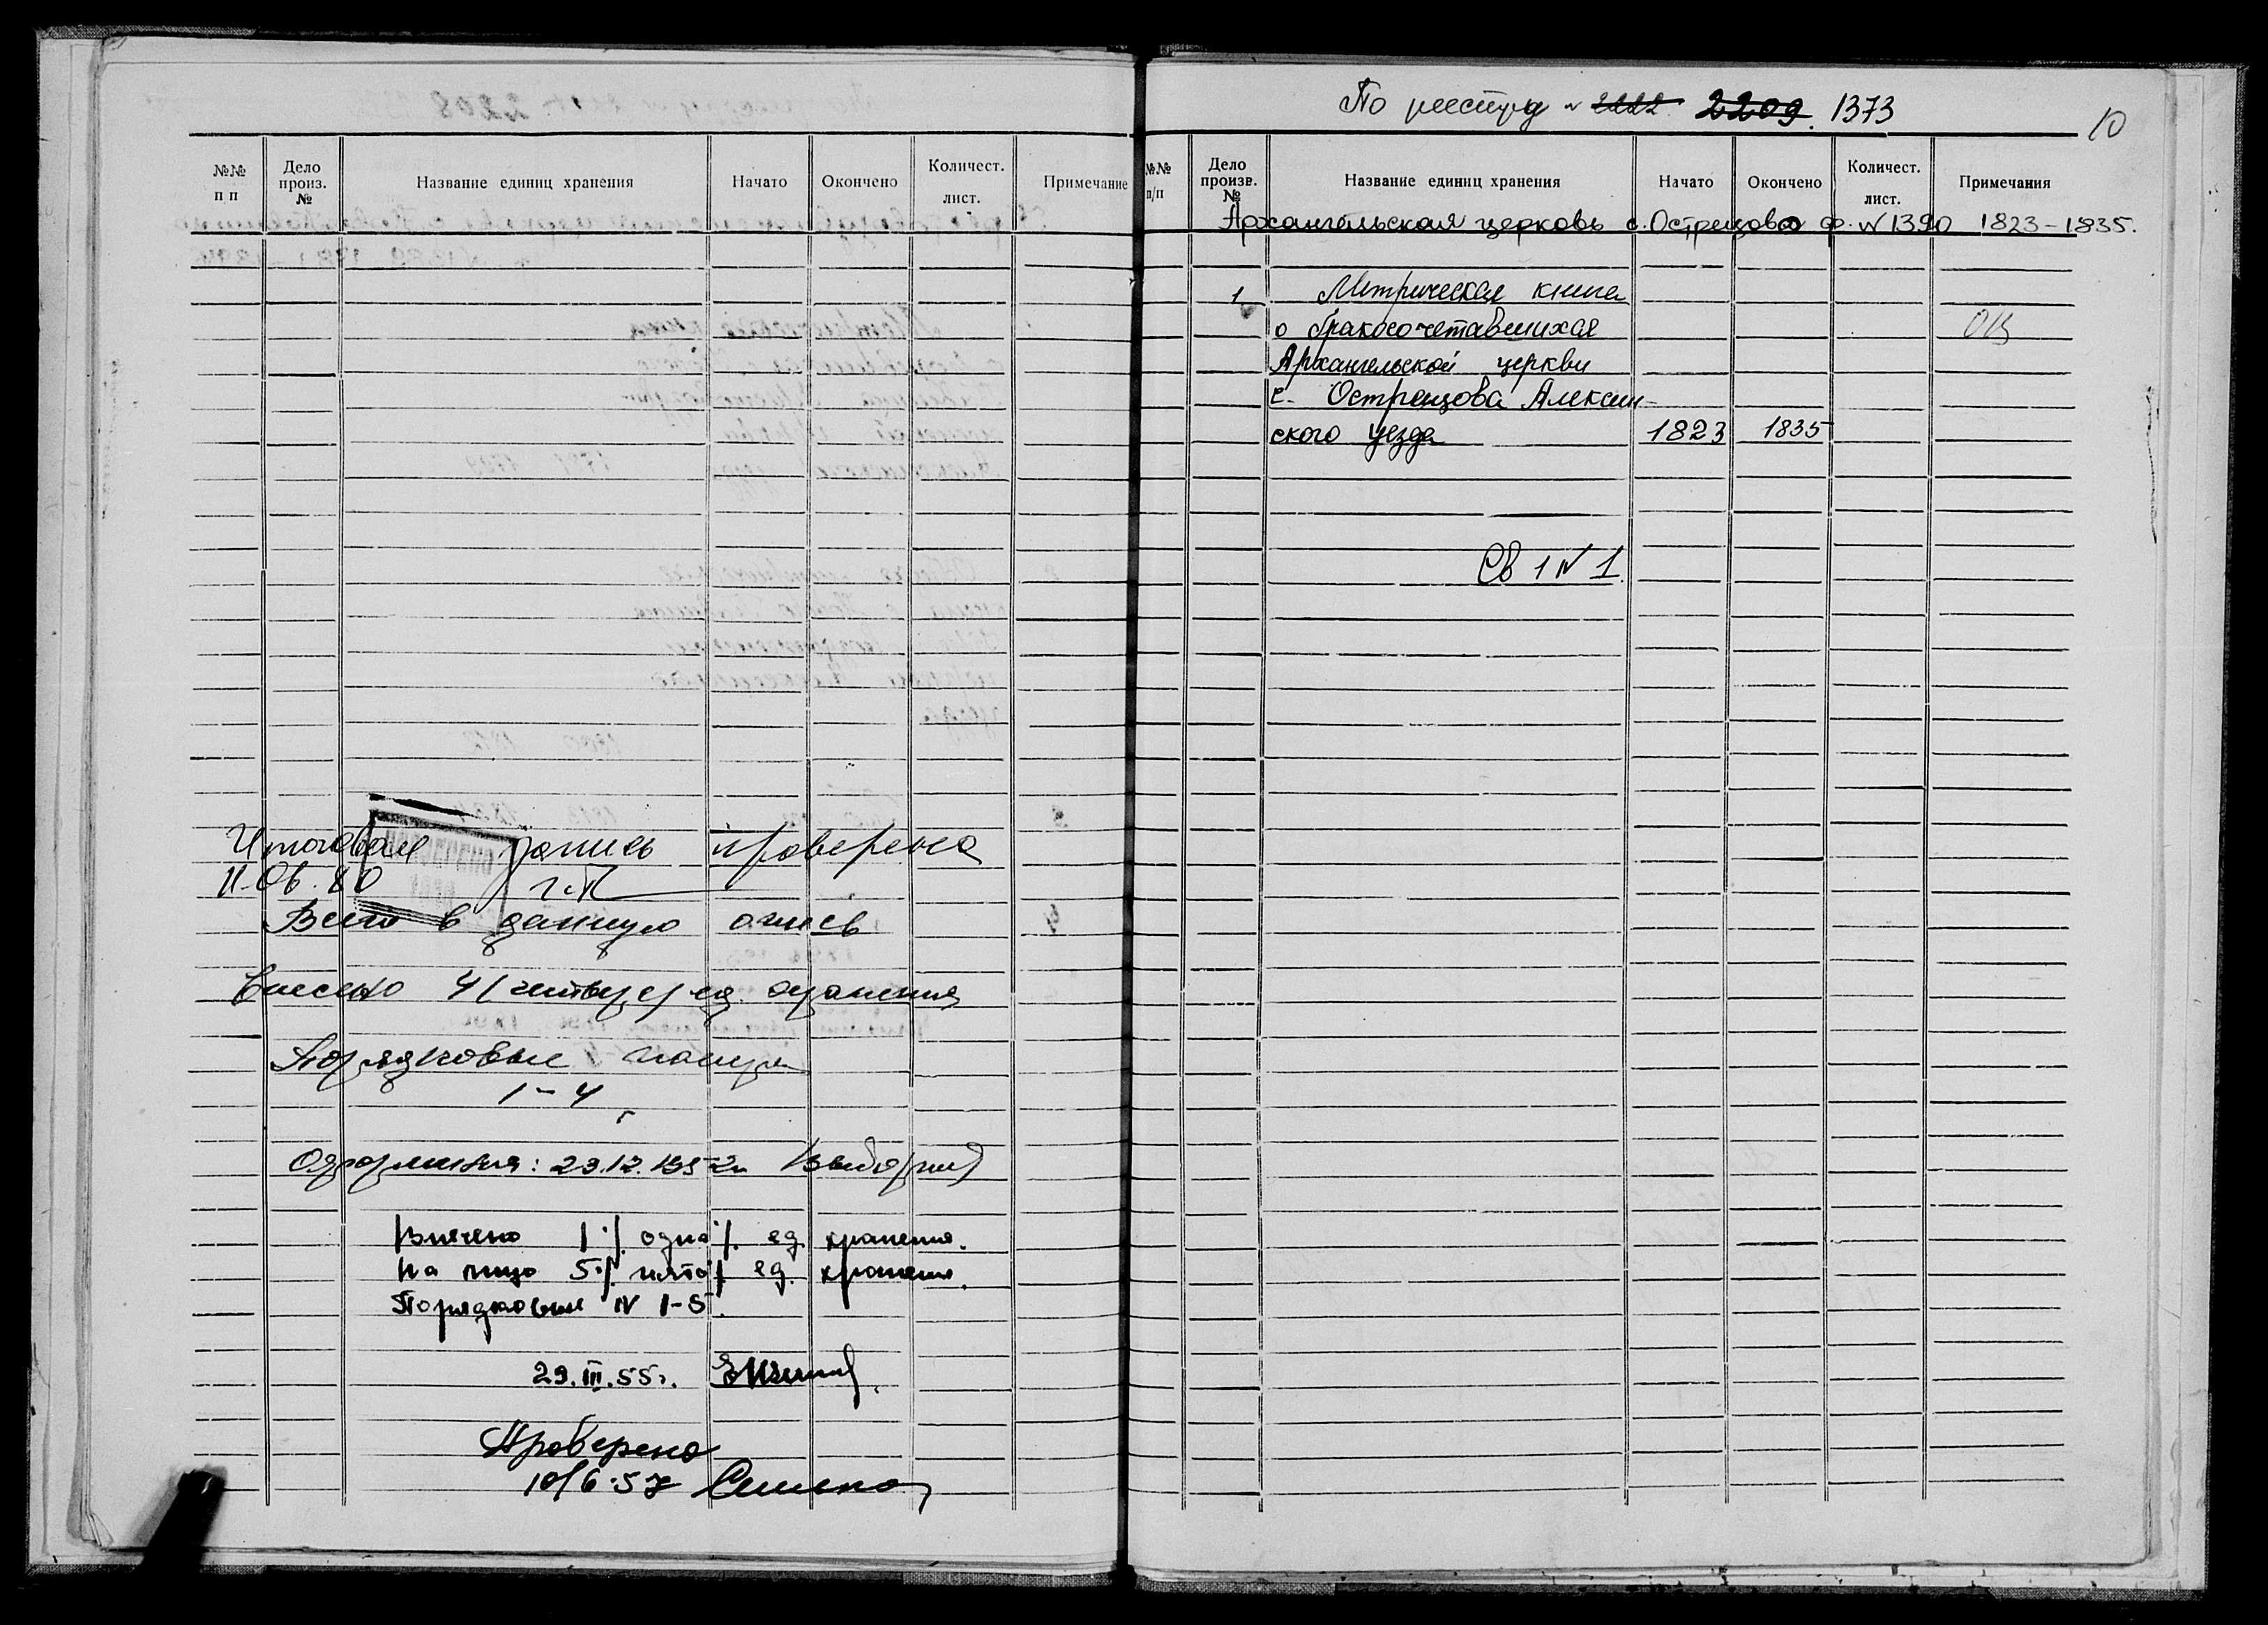 №№ п п | Дело произ. № | Название единиц хранения | Начато | Окончено | Количест. лист. | Примечание
Итоговая запись проверена
11.06.80
Всего в данную опись
внесено 4 (четыре) ед. хранения
Порядковые номера
1-4
Оформлена: 29.12.1952г
Внесено 1 ·/. одна ·/. ед. хранения.
На лицо 5 ·/. пять ·/. ед. хранения.
Порядковые № 1-5.
29.III.55г.
Проверено
10/6-57
По реестру № 2222 2209. 1373
10
№№ п/п | Дело произв. № | Название единиц хранения | Начато | Окончено | Количест. лист. | Примечания
Архангельская церковь с. Острецово ф. № 1390 1823-1835.
1 Метрическая книга
о бракосочетавшихся
ОЦ
Архангельской церкви
с. Острецова Алексин-
ского уезда 1823 1835
Св 1 № 1